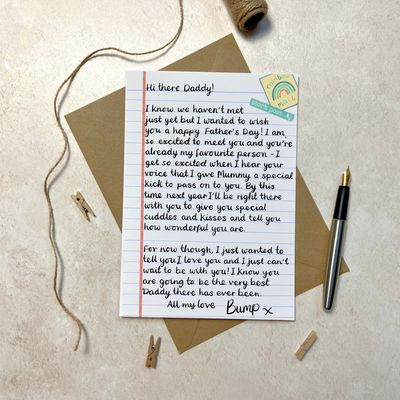 Hi there Daddy!
rainbow
mail
stork post
I know we haven't met
just yet but I wanted to wish
you a happy Father's Day! I am
so excited to meet you and you're
already my favourite person - I
get so excited when I hear your
voice that I give Mummy a special
kick to pass on to you. By this
time next year I'll be right there
with you to give you special
cuddles and kisses and tell you
how wonderful you are.
For now though, I just wanted to
tell you I love you and I just can't
wait to be with you! I know you
are going to be the very best
Daddy there has ever been.
All my love Bump x